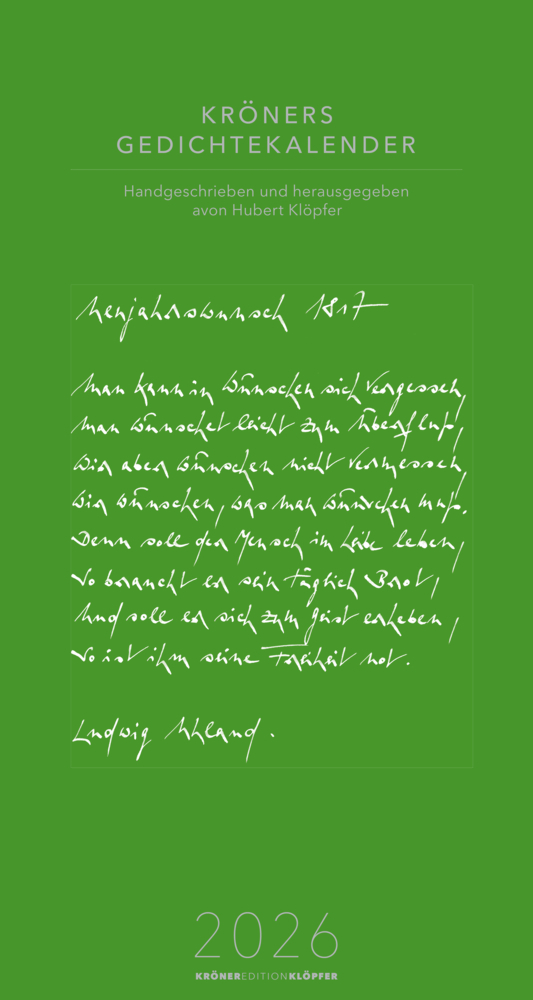 KRÖNERS
GEDICHTEKALENDER
Handgeschrieben und herausgegeben
avon Hubert Klöpfer
Neujahrswunsch 1817
Man kann im Wünschen sich vergessen,
Man wünschet leicht zum Überfluß,
Wir aber wünschen nicht vermessen,
Wir wünschen, was man wünschen muß.
Denn soll der Mensch im Leibe leben,
So braucht er sein täglich Brot,
Und soll er sich zum Geist erheben,
So ist ihm seine Freiheit not.
Ludwig Uhland.
2026
KRÖNEREDITIONKLÖPFER